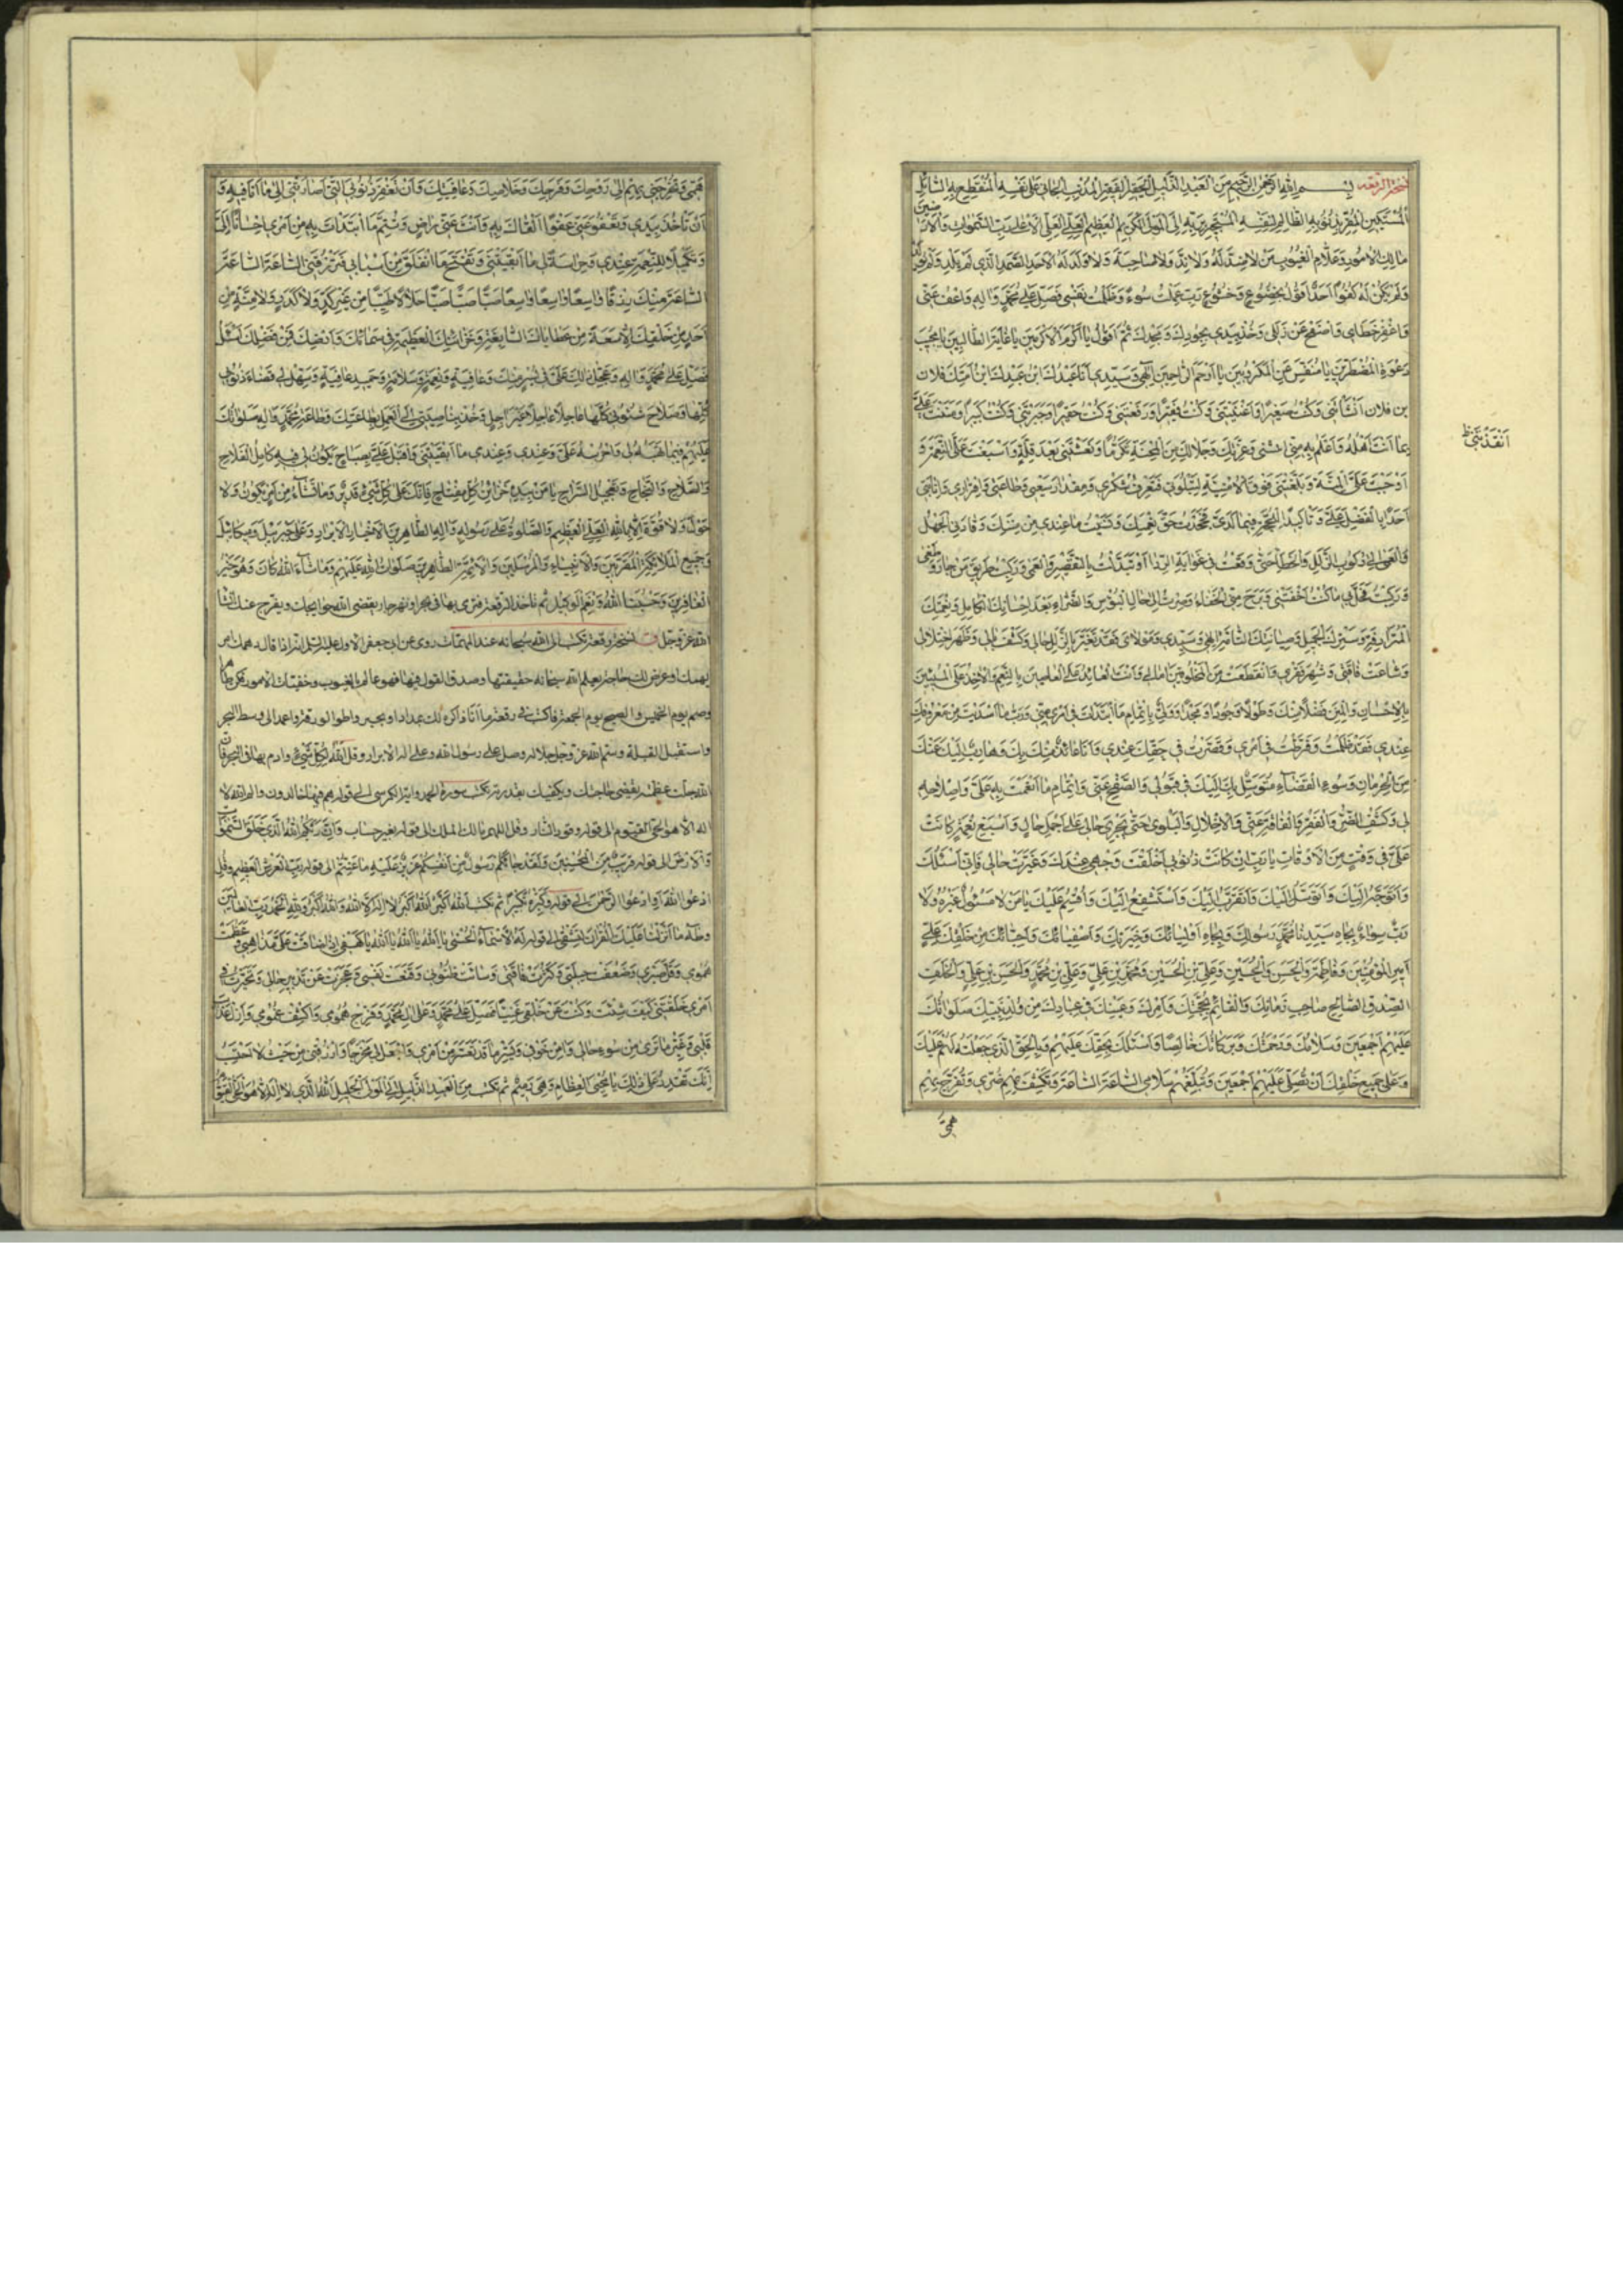 نسخة الرقعه بسم الله الرحمن الرحيم من العبد الذليل الحقير الفقير المذنب الجاني على نفسه المنقطع به السائل
المستكين المقر بذنوبه الظالم لنفسه المستجير بربه الى المولى الكريم العظيم العلي الاعلى رب السموات والارضين
مالك الامور وعلام الغيوب من لا ضد له ولا ند ولا صاحبة ولا ولد له الاحد الصمد الذي لم يلد ولم يولد
ولم يكن له كفوا احد اقول بخضوع وخشوع رب عملت سوء وظلمت نفسي فصل على محمد واله واعف عني
واغفر خطاي واصفح عن زللي وخذ بيدي بجودك ومجدك ثم اقول يا اكرم الاكرمين يا غاية الطالبين يا مجيب
دعوة المضطرين يا منفس عن المكروبين يا ارحم الراحمين الهي وسيدي انا عبدك ابن عبدك ابن امتك فلان
بن فلان انشأتني وكنت صغيرا واغنيتني وكنت فقيرا ورفعتني وكنت حقيرا وجبرتني وكنت كسيرا
انت اهله واعلم به مني وعزتك وجلالك
انقذتني ظ
اوجبت علي المنة وبلغتني فوق الامنية لتبلوني فتعرف شكري ومقدار سعيي وطاعتي واقراري
احدا بالفضل علي وتأكيدا للحجة فيما لدي فجحدت حق نعمتك ونسيت ما عندي من مننك وقادني الجهل
والعمى الى ركوب الزلل والخطأ حتى وقعت في غواية الردا وتبدلت بالتقصير والعمى وركبت طريق من جار وطغى
وصرت الى حال البؤس والضراء بعد احسانك الكامل ونعمتك
المترادفة وسترك الجميل وصيانتك التامة الهي وسيدي ومولاي فقد تغير بالزلل حالي وكشف بالي وظهر اختلالي
وشاعت فاقتي وشهر فقري وانقطعت من المخلوقين امالي وانت العائد على العالمين بالنعم والاخذ على المسيئين
بالاحسان والمن فضلا منك وطولا وجودا ومجدا وولي باتمام ما ابتدات في امري مني ورب ما اسديت من معروفك
عندي فقد ظلمت وفرطت في امري وقصرت في حقك عندي وانا عائذ منك بك وهارب اليك عنك
من الحرمان وسوء القضاء متوسل بك اليك في قبولي والصفح عني واتمام ما انعمت به علي واصلاحه
لي وكشف الضر والفقر والفاقة عني والاخلال والبلوى حتى تجري حالي على اجمل حال واسبغ نعمة كانت
علي في وقت من الاوقات يا رب ان كانت ذنوبي اخلقت وجهي عندك وغيرت حالي فاني اسئلك
واتوجه اليك واتوسل اليك واتقرب اليك واستشفع اليك واقسم عليك يا من لا مسئول غيره ولا
رب سواه بجاه سيدنا محمد رسولك وبجاه اوليائك وخيرتك واصفيائك واحبائك من خلقك علي
امير المؤمنين وفاطمة والحسن والحسين وعلي بن الحسين ومحمد بن علي وعلي بن محمد والحسن بن علي والخلف
الصدق الصالح صاحب زمانك والقائم بحجتك وامرك وعينك في عبادك من ولد نبيك صلواتك
عليهم اجمعين وسلامك ورحمتك وبركاتك خالصا واسئلك بحقك عليهم وبالحق الذي جعلته لهم عليك
وعلى جميع خلقك ان تصلي عليهم اجمعين وتبلغهم سلامي الساعة الساعة وتكشف بهم ضري وتفرج بهم
همي
همي وتخرجني بهم الى روحك وفرجك وخلاصك وعافيتك وان تغفر ذنوبي التي اصارتني الى ما انا فيه و
ان تاخذ بيدي وتعفو عني عفوا القاك به وانت عني راض وتتم ما ابتدات به من امري احسانا الي
وتكميلا للنعمة عندي وحراسة لي ما ابقيتني وتفتح ما انغلق من اسبابي فترزقني الساعة الساعة
الساعة منك رزقا واسعا واسعا واسعا صبا صبا صبا حلالا طيبا من غير كد ولا كدر ولا منة من
احد من خلقك الا سعة من عطاياك السابغة وخزائنك العظيمة في سمائك وارضك فمن فضلك اسئل
فصل على محمد واله وعجل ذلك علي في يسر منك وعافية ونعمة وسلامة وحميد عافية وسهل لي قضاء ديوني
كلها وصلاح شئوني كلها عاجلا عاجلا غير اجل وخذ بناصيتي الى العمل بطاعتك وطاعة محمد واله صلواتك
عليهم فيما تهبه لي واحرسه علي وعندي ما ابقيتني واقبل علي بصباح يكون لي فيه كامل الفلاح
والصلاح والنجاح وتعجيل السراح يا من بيده خزائن كل مفتاح فانك على كل شيء قدير وما تشاء من امر يكون ولا
حول ولا قوة الا بالله العلي العظيم والصلوة على رسوله واله الطاهرين الاخيار الابرار وعلى جبرئيل وميكائيل
وجميع الملائكة المقربين والانبياء والمرسلين والائمة الطاهرين صلوات الله عليهم وما شاء الله كان وهو خير
الغافرين وحسبنا الله ونعم الوكيل ثم تاخذ الرقعة فترمي بها في بحر او نهر جار يقضي الله حوايجك ويفرج عنك انشاء
الله عز وجل نسخة رقعة تكتب الى الله سبحانه عند المهمات روى عن ابي جعفر الاول عليه السلم انه اذا قال همك امر
يهمك او عرض لك حاجة يعلم الله سبحانه حقيقتها وصدق القول فيها فهو عالم بالغيوب وخفيات الامور
وصم يوم الخميس واصبح يوم الجمعة فاكتب في رقعة ما انا ذاكره لك بمداد او بحبر واطو الورقة واعمد الى وسط البحر
واستقبل القبلة وسم الله عز وجل جلاله وصل على رسول الله وعلى اله الابرار وقل الله لكل شيء وارم بها في البحر فان
الله جلت عظمته يقضي حاجتك ويكفيك بقدرته تكتب سورة الحمد واية الكرسي الى قوله هم فيها خالدون والم الله لا
اله الا هو الحي القيوم الى قوله وقود النار وقل اللهم مالك الملك الى قوله بغير حساب وان ربكم الله الذي خلق السموات
والارض الى قوله قريب من المحسنين ولقد جائكم رسول من انفسكم عزيز عليه ما عنتم الى قوله رب العرش العظيم وقل
ادعوا الله او ادعوا الرحمن الى قوله وكبره تكبيرا ثم تكتب الله اكبر الله اكبر لا اله الا الله والله اكبر ولله الحمد رب العالمين
وطه ما انزلنا عليك القران لتشقى الى قوله له الاسماء الحسنى يا الله يا الله يا الله
همومي وقل صبري وضعفت حيلتي وكثرت فاقتي وسائت ظنوني وقنعت نفسي وعجزت عن تدبير حالي وتحيرت في
امري خلقتني كيف شئت وكنت عن خلقي غنيا فصل على محمد وعلى ال محمد وفرج همومي واكشف غمومي
قلبي وغير ما ترى من سوء حالي وامن خوفي ويسر ما قد تعسر من امري واجعل لي مخرجا وارزقني من حيث لا احتسب
انك تقدر على ذلك يا محيي العظام وهي رميم ثم تكتب من العبد الذليل الى المولى الجليل الله الذي لا اله الا هو الحي القيوم